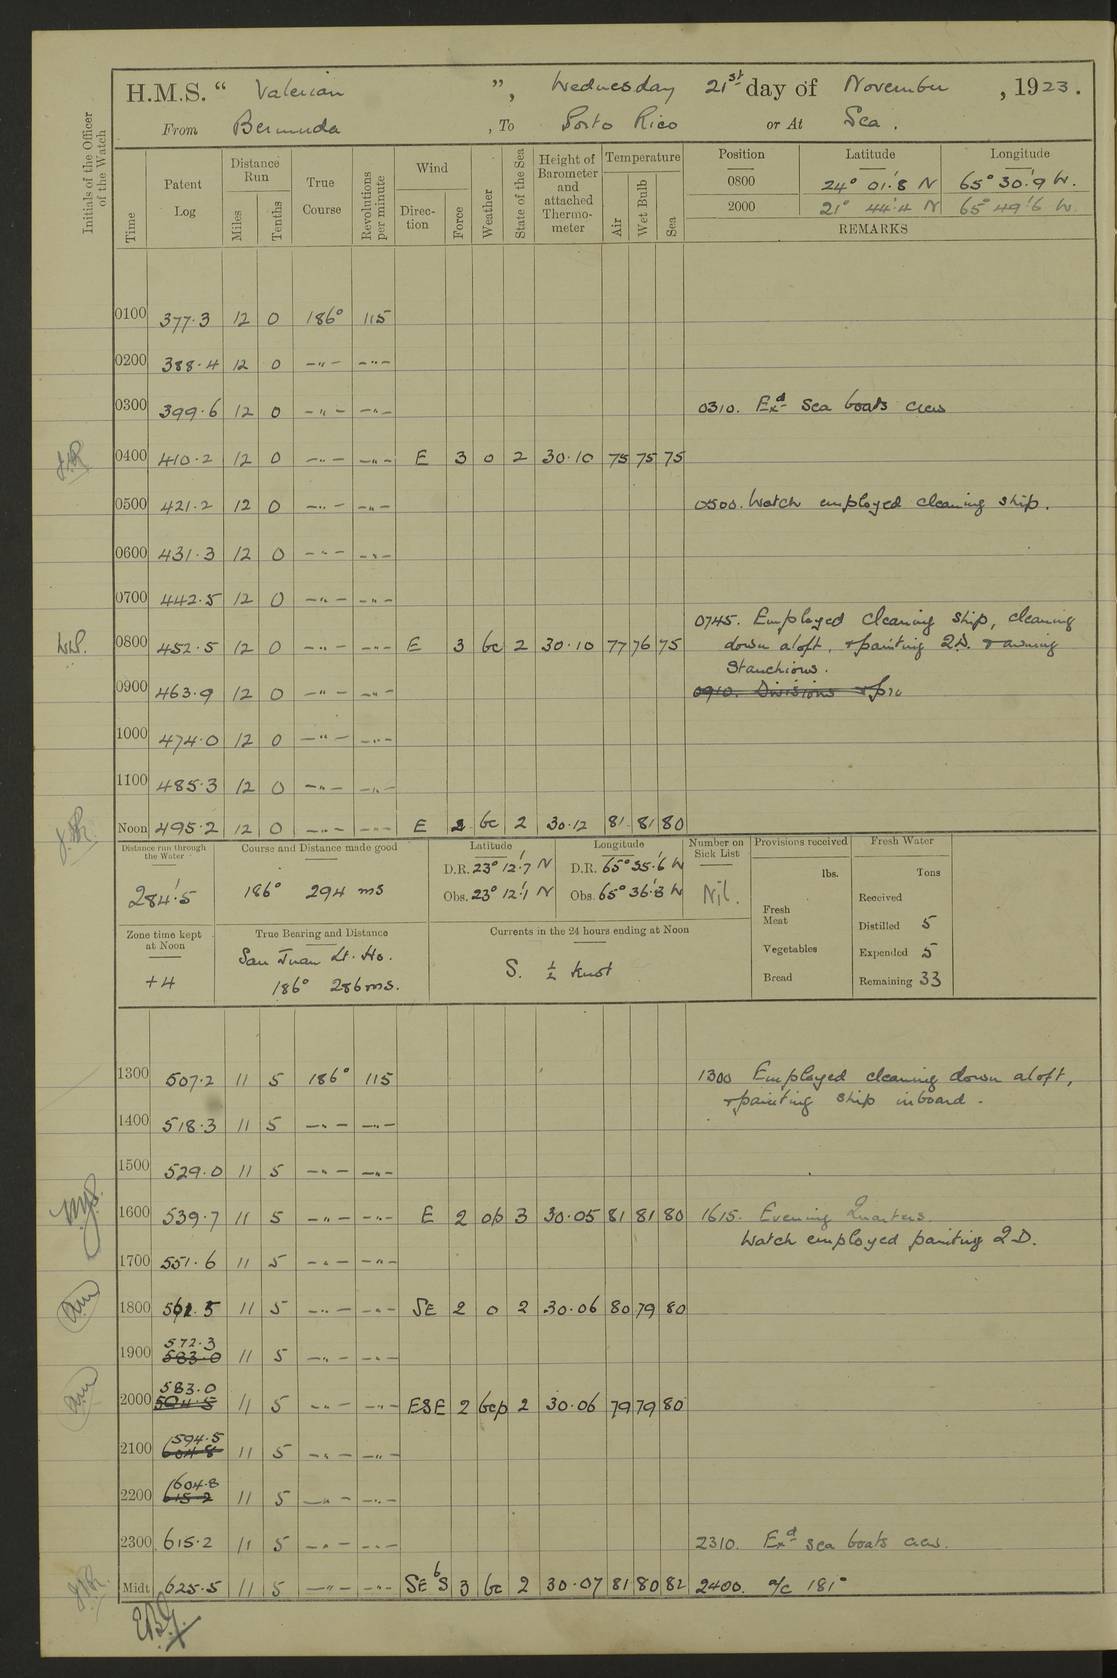 H.M.S. “ Valerian ”, Wednesday 21st day of November, 1923.
From Bermuda, To Porto Rico or At Sea.
Initials of the Officer of the Watch
Time
Patent Log
Distance Run
Miles
Tenths
True Course
Revolutions per minute
Wind
Direc-tion
Force
Weather
State of the Sea
Height of Barometer and attached Thermo-meter
Temperature
Air
Wet Bulb
Sea
Position Latitude Longitude
0800 24° 01'.8 N 65° 30'.9 W.
2000 21° 44'.4 N 65° 49'.6 W
REMARKS
0100 377.3 12 0 186° 115
0200 388.4 12 0 —"— —"—
0300 399.6 12 0 —"— —"— 0310. Exd Sea boats crew
0400 410.2 12 0 —"— —"— E 3 o 2 30.10 75 75 75
0500 421.2 12 0 —"— —"— 0500. Watch employed cleaning ship.
0600 431.3 12 0 —"— —"—
0700 442.5 12 0 —"— —"—
0745. Employed cleaning ship, cleaning
0800 452.5 12 0 —"— —"— E 3 bc 2 30.10 77 76 75 down aloft, & painting Q.D. & awning
Stanchions.
0900 463.9 12 0 —"— —"— 0910. Divisions & pra
1000 474.0 12 0 —"— —"—
1100 485.3 12 0 —"— —"—
Noon 495.2 12 0 —"— —"— E 2 bc 2 30.12 81 81 80
Distance run through the Water
284'.5
Course and Distance made good
186° 294 ms
Latitude Longitude
D.R. 23° 12'.7 N D.R. 65° 35'.6 W
Obs. 23° 12'.1 N Obs. 65° 36'.8 W
Number on Sick List
Nil.
Provisions received
lbs.
Fresh Meat
Vegetables
Bread
Fresh Water
Tons
Received
Distilled 5
Expended 5
Remaining 33
Zone time kept at Noon
+4
True Bearing and Distance
San Juan Lt. Ho.
186° 286 ms.
Currents in the 24 hours ending at Noon
S. ½ knot
1300 507.2 11 5 186° 115 1300 Employed cleaning down aloft,
& painting ship inboard.
1400 518.3 11 5 —"— —"—
1500 529.0 11 5 —"— —"—
1600 539.7 11 5 —"— —"— E 2 op 3 30.05 81 81 80 1615. Evening Quarters.
Watch employed painting Q.D.
1700 551.6 11 5 —"— —"—
1800 561.5 11 5 —"— —"— SE 2 o 2 30.06 80 79 80
572.3
1900 583.0 11 5 —"— —"—
583.0
2000 594.5 11 5 —"— —"— ESE 2 bcp 2 30.06 79 79 80
594.5
2100 604.8 11 5 —"— —"—
604.8
2200 615.2 11 5 —"— —"—
2300 615.2 11 5 —"— —"— 2310. Exd sea boats crew.
Midt 625.5 11 5 —"— —"— SEbS 3 bc 2 30.07 81 80 82 2400. a/c 181°